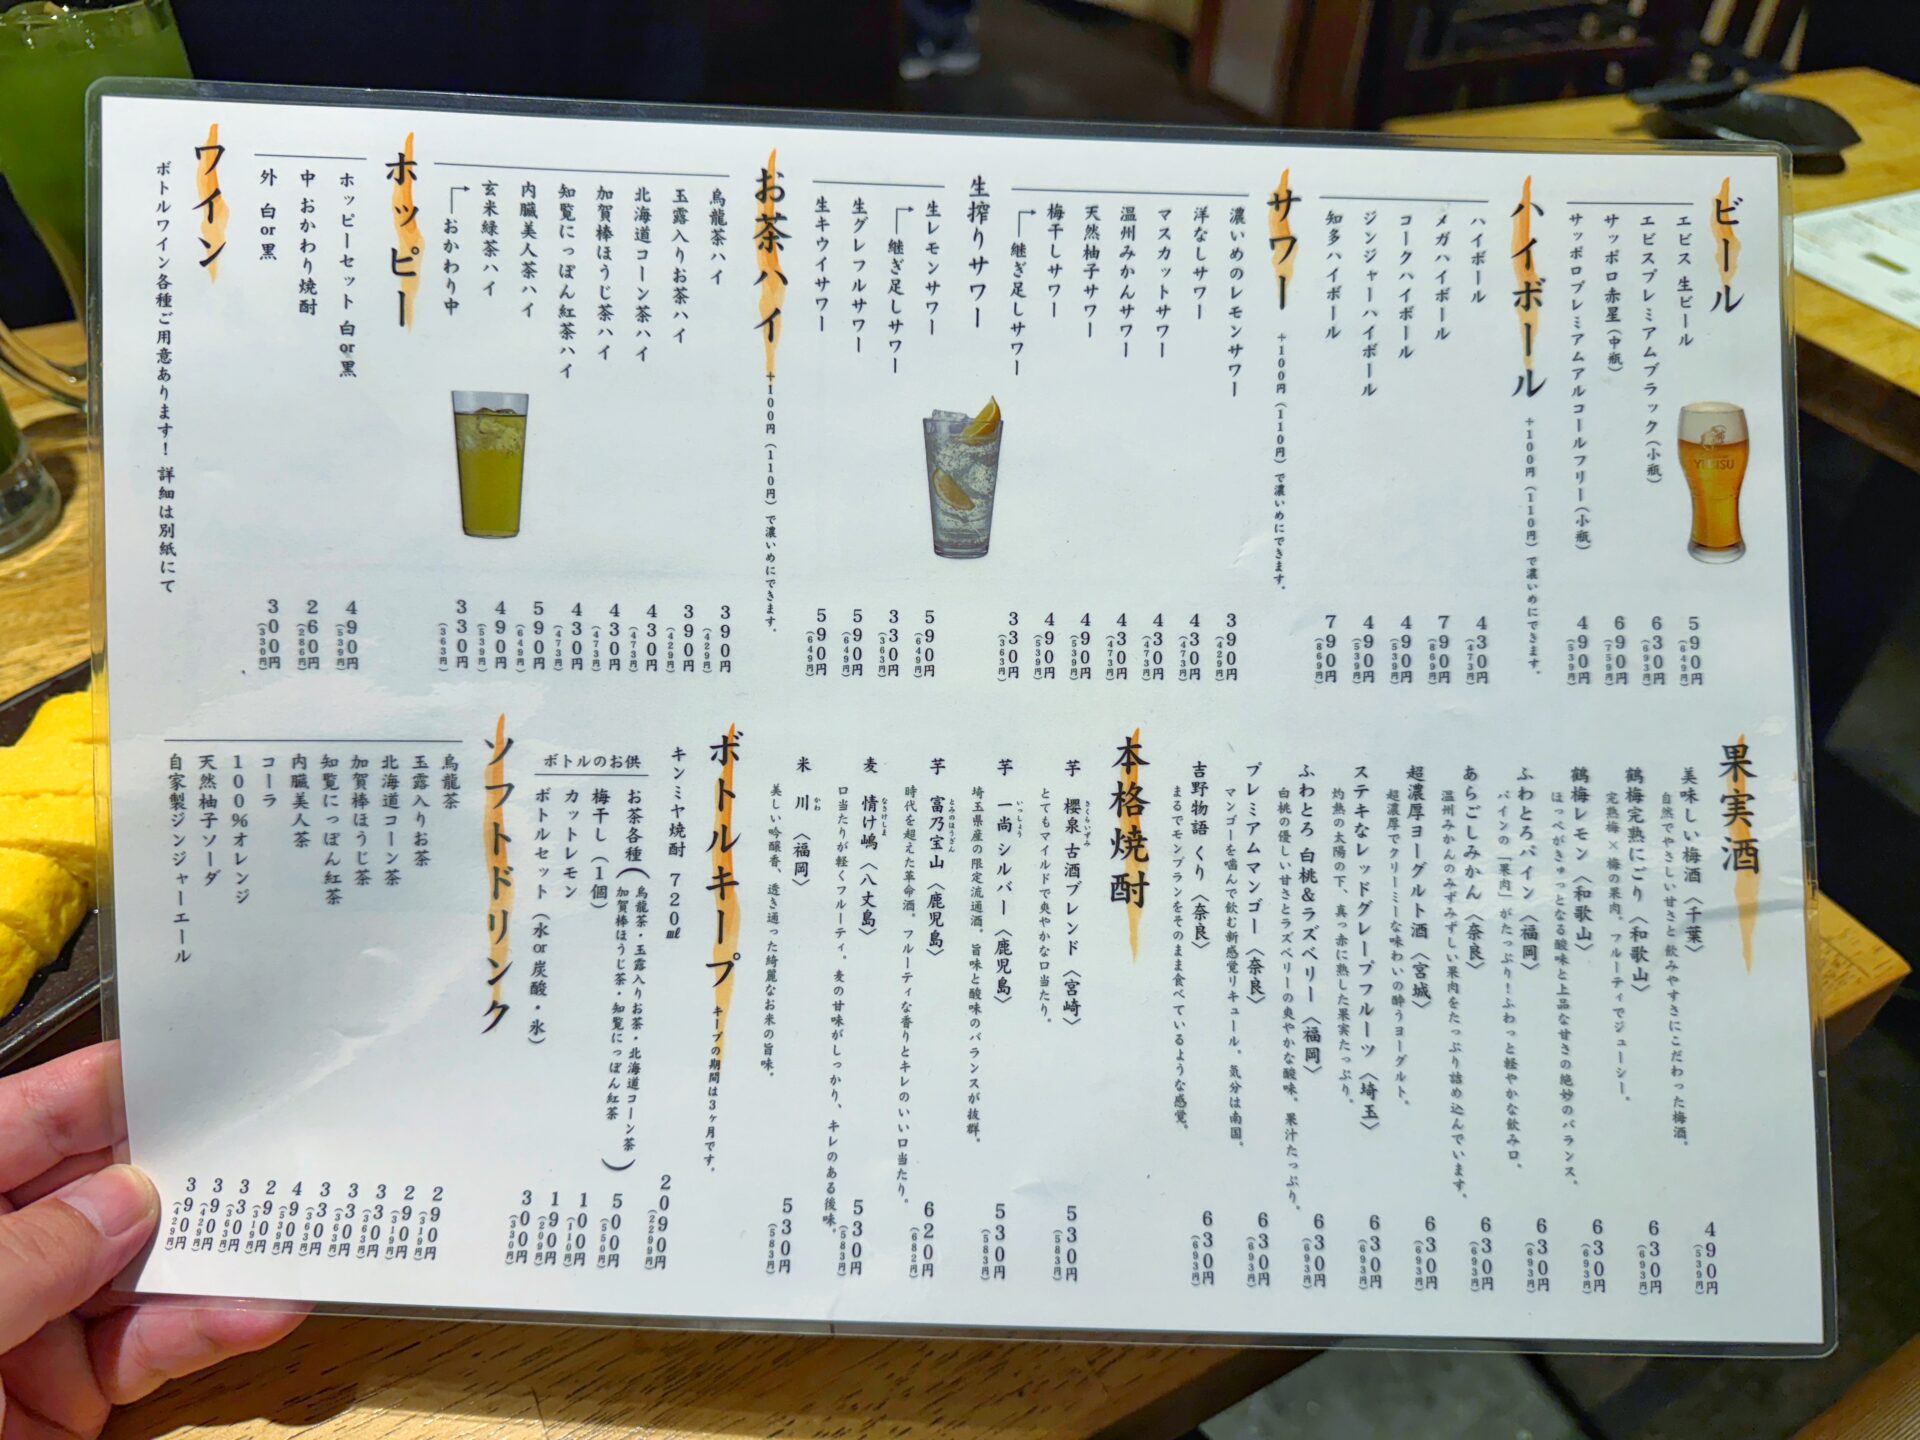 ビール
エビス 生ビール 590円(649円)
エビスプレミアムブラック(小瓶) 630円(693円)
サッポロ赤星(中瓶) 690円(759円)
サッポロプレミアムアルコールフリー(小瓶) 490円(539円)
YEBISU
ハイボール +100円(110円)で濃いめにできます。
ハイボール 430円(473円)
メガハイボール 790円(869円)
コークハイボール 490円(539円)
ジンジャーハイボール 490円(539円)
知多ハイボール 790円(869円)
サワー +100円(110円)で濃いめにできます。
濃いめのレモンサワー 390円(429円)
洋なしサワー 430円(473円)
マスカットサワー 430円(473円)
温州みかんサワー 430円(473円)
天然柚子サワー 490円(539円)
梅干しサワー 490円(539円)
継ぎ足しサワー 330円(363円)
生搾りサワー
生レモンサワー 590円(649円)
継ぎ足しサワー 330円(363円)
生グレフルサワー 590円(649円)
生キウイサワー 590円(649円)
お茶ハイ +100円(110円)で濃いめにできます。
烏龍茶ハイ 390円(429円)
玉露入りお茶ハイ 390円(429円)
北海道コーン茶ハイ 430円(473円)
加賀棒ほうじ茶ハイ 430円(473円)
知覧にっぽん紅茶ハイ 430円(473円)
内臓美人茶ハイ 590円(649円)
玄米緑茶ハイ 490円(539円)
おかわり中 330円(363円)
ホッピー
ホッピーセット 白or黒 490円(539円)
中 おかわり焼酎 260円(286円)
外 白or黒 300円(330円)
ワイン
ボトルワイン各種ご用意あります! 詳細は別紙にて
果実酒
美味しい梅酒〈千葉〉 490円(539円)
自然でやさしい甘さと飲みやすさにこだわった梅酒。
鶴梅完熟にごり〈和歌山〉 630円(693円)
完熟梅×梅の果肉。フルーティでジューシー。
鶴梅レモン〈和歌山〉 630円(693円)
ほっぺがきゅっとなる酸味と上品な甘さの絶妙のバランス。
ふわとろパイン〈福岡〉 630円(693円)
パインの「果肉」がたっぷり!ふわっと軽やかな飲み口。
あらごしみかん〈奈良〉 630円(693円)
温州みかんのみずみずしい果肉をたっぷり詰め込んでいます。
超濃厚ヨーグルト酒〈宮城〉 630円(693円)
超濃厚でクリーミーな味わいの酔うヨーグルト。
ステキなレッドグレープフルーツ〈埼玉〉 630円(693円)
灼熱の太陽の下、真っ赤に熟した果実たっぷり。
ふわとろ 白桃&ラズベリー〈福岡〉 630円(693円)
白桃の優しい甘さとラズベリーの爽やかな酸味。果汁たっぷり。
プレミアムマンゴー〈奈良〉 630円(693円)
マンゴーを噛んで飲む新感覚リキュール。気分は南国。
吉野物語 くり〈奈良〉 630円(693円)
まるでモンブランをそのまま食べているような感覚。
本格焼酎
芋 櫻泉 古酒ブレンド〈宮崎〉 530円(583円)
さくらいずみ
とてもマイルドで爽やかな口当たり。
芋 一尚 シルバー〈鹿児島〉 530円(583円)
いっしょう
埼玉県産の限定流通酒。旨味と酸味のバランスが抜群。
芋 富乃宝山〈鹿児島〉 620円(682円)
とみのほうざん
時代を超えた革命酒。フルーティな香りとキレのいい口当たり。
麦 情け嶋〈八丈島〉 530円(583円)
なさけしま
口当たりが軽くフルーティ。麦の甘味がしっかり、キレのある後味。
米 川〈福岡〉 530円(583円)
かわ
美しい吟醸香、透き通った綺麗なお米の旨味。
ボトルキープ キープの期間は3ヶ月です。
キンミヤ焼酎 720㎖ 2090円(2299円)
ボトルのお供
お茶各種(烏龍茶・玉露入りお茶・北海道コーン茶・加賀棒ほうじ茶・知覧にっぽん紅茶) 500円(550円)
梅干し(1個) 100円(110円)
カットレモン 190円(209円)
ボトルセット(水or炭酸・氷) 300円(330円)
ソフトドリンク
烏龍茶 290円(319円)
玉露入りお茶 290円(319円)
北海道コーン茶 330円(363円)
加賀棒ほうじ茶 330円(363円)
知覧にっぽん紅茶 330円(363円)
内臓美人茶 490円(539円)
コーラ 290円(319円)
100%オレンジ 330円(363円)
天然柚子ソーダ 390円(429円)
自家製ジンジャーエール 390円(429円)